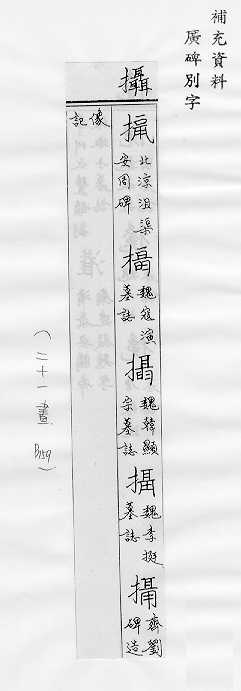 補充資料
廣碑別字
攝
北涼沮渠
安周碑
魏寇演
墓誌
魏韓顯
宗墓誌
魏李挺
墓誌
齊劉
碑造
像記
（二十一畫 B159）